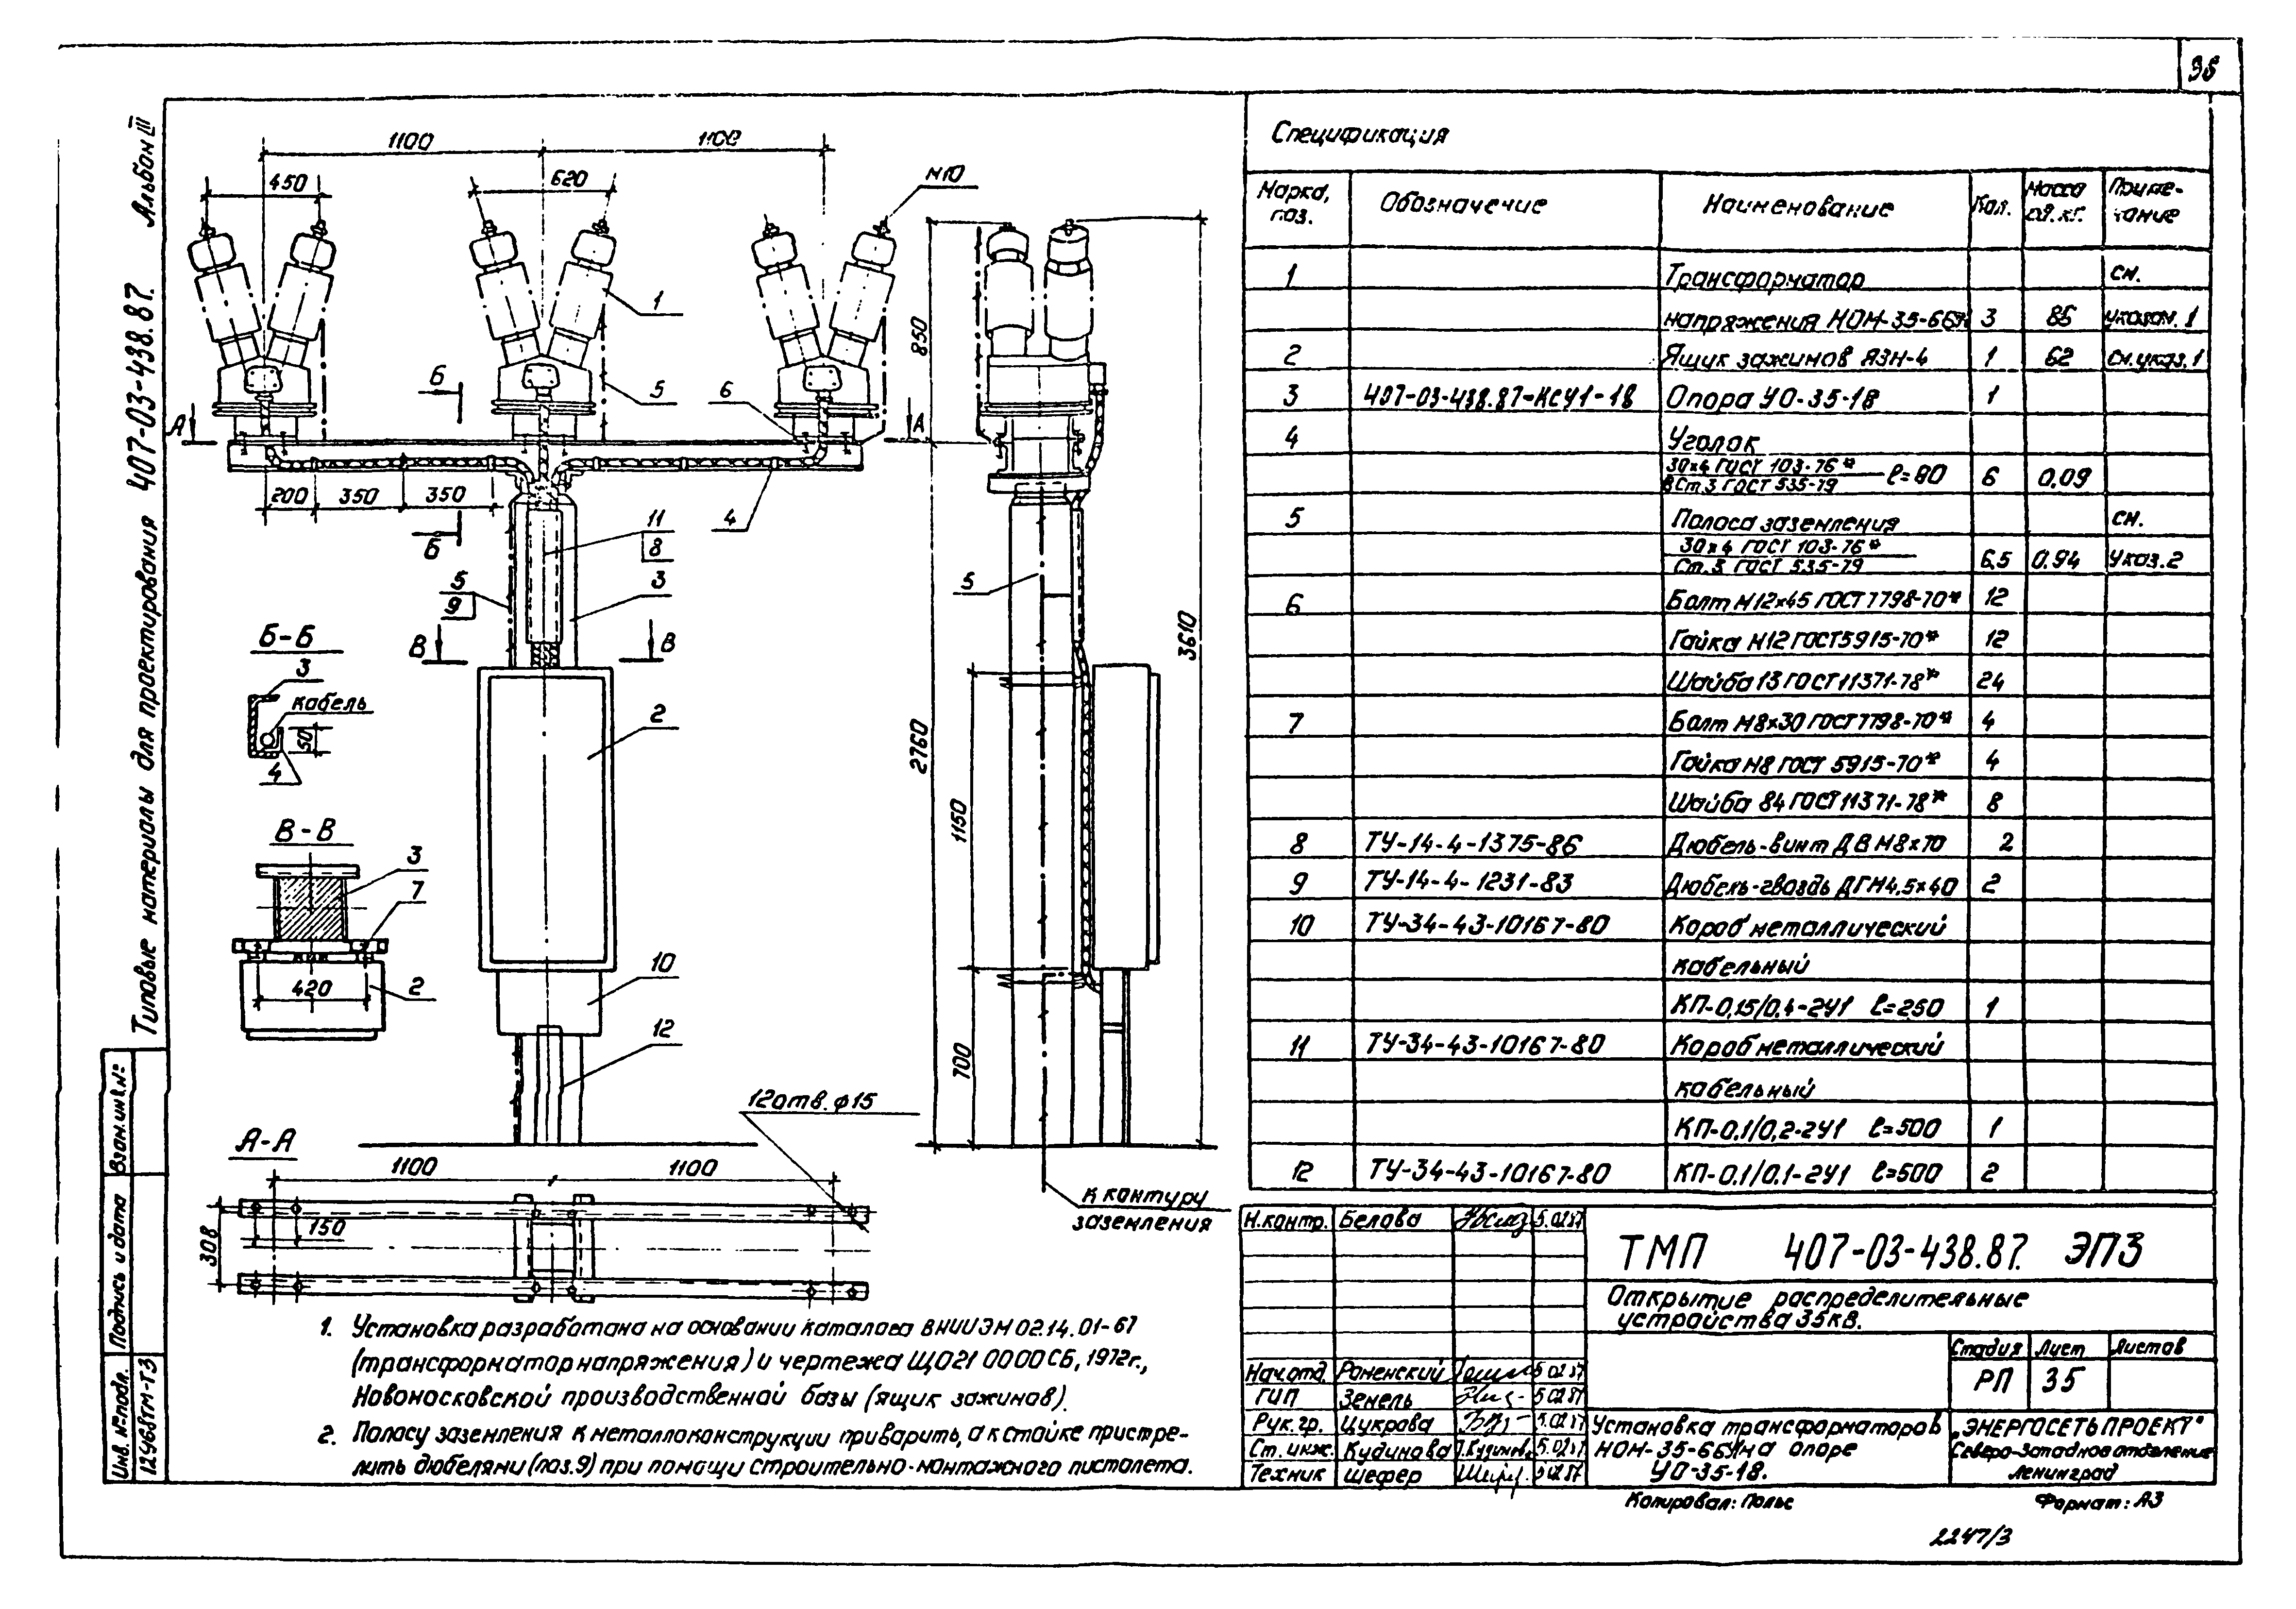 36
Типовые материалы для проектирования 407-03-438.87. Альбом III
1100
1100
450
620
М10
1
850
Б
5
6
А
А
200
350
350
11
8
4
Б
5
9
3
5
В
В
3610
Б-Б
3
кабель
50
4
2
2760
1150
В-В
3
7
420
2
10
12
700
12отв. ф15
А-А
1100
1100
150
308
к контуру
заземления
1. Установка разработана на основании каталога ВНИИЭМ 02.14.01-67
(трансформатор напряжения) и чертежа ЩО21 0000СБ, 1972г.,
Новомосковской производственной базы (ящик зажимов).
2. Полосу заземления к металлоконструкции приварить, а к стойке пристре-
лить дюбелями (поз.9) при помощи строительно-монтажного пистолета.
Спецификация
Марка, поз. Обозначение Наименование Кол. Масса ед. кг. Приме-чание
1 Трансформатор см.
напряжения НОМ-35-66У1 3 85 указан. 1
2 Ящик зажимов ЯЗН-4 1 62 см. указ. 1
3 407-03-438.87-КСУ1-18 Опора УО-35-18 1
4 Уголок
30х4 ГОСТ 103-76*
ВСт.3 ГОСТ 535-79 ℓ=80 6 0,09
5 Полоса заземления см.
30х4 ГОСТ 103-76*
Ст.3 ГОСТ 535-79 6,5 0,94 указ.2
6 Болт М12х45 ГОСТ 7798-70* 12
Гайка М12 ГОСТ 5915-70* 12
Шайба 13 ГОСТ 11371-78* 24
7 Болт М8х30 ГОСТ 7798-70* 4
Гайка М8 ГОСТ 5915-70* 4
Шайба 84 ГОСТ 11371-78* 8
8 ТУ-14-4-1375-86 Дюбель-винт ДВ М8х70 2
9 ТУ-14-4-1231-83 Дюбель-гвоздь ДГН4,5х40 2
10 ТУ-34-43-10167-80 Короб металлический
кабельный
КП-0,15/0,4-2У1 ℓ=250 1
11 ТУ-34-43-10167-80 Короб металлический
кабельный
КП-0,1/0,2-2У1 ℓ=500 1
12 ТУ-34-43-10167-80 КП-0,1/0,1-2У1 ℓ=500 2
Н.контр. Белова 5.02.87
ТМП 407-03-438.87. ЭП3
Открытие распределительные
устройства 35кВ.
Стадия Лист Листов
РП 35
Нач.отд. Роменский 5.02.87
ГИП Земель 5.02.87
Рук.гр. Цукрова 5.02.87
Ст.инж. Кудинова 5.02.87
Техник Шефер 5.02.87
Установка трансформаторов
НОМ-35-66У1 на опоре
УО-35-18.
„ЭНЕРГОСЕТЬПРОЕКТ"
Северо-Западное отделение
Ленинград
Копировал: Польс
Формат: А3
2247/3
Взам.инв.№
Подпись и дата
Инв. № подл.
12446вТМ-Т3